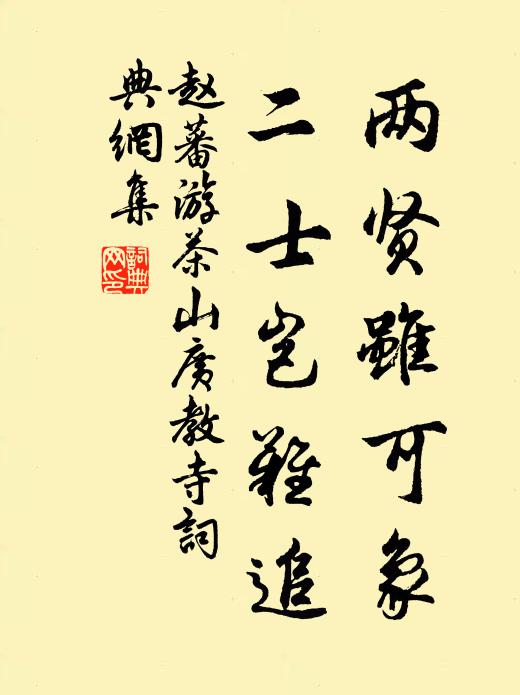 两贤雖可象
二士岂難追
赵蕃游茶山廣教寺詞
典網集
詞典网印